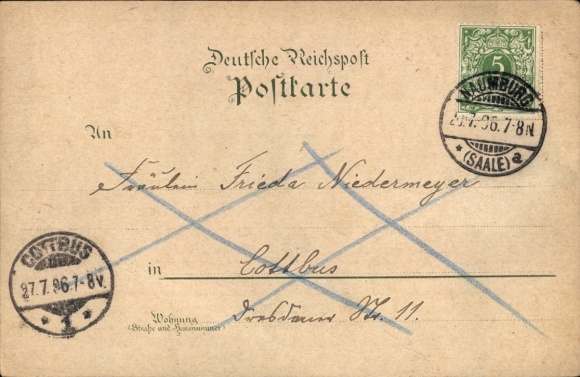 Deutsche Reichspost
Postkarte
5
NAUMBURG
7.96.7-8N
* (SAALE) a
An
Fräulein Frieda Niedermeyer
COTTBUS
27.7.96.7-8V.
* 1 *
in Cottbus
Wohnung
(Straße und Hausnummer)
Dresdener Str. 11.